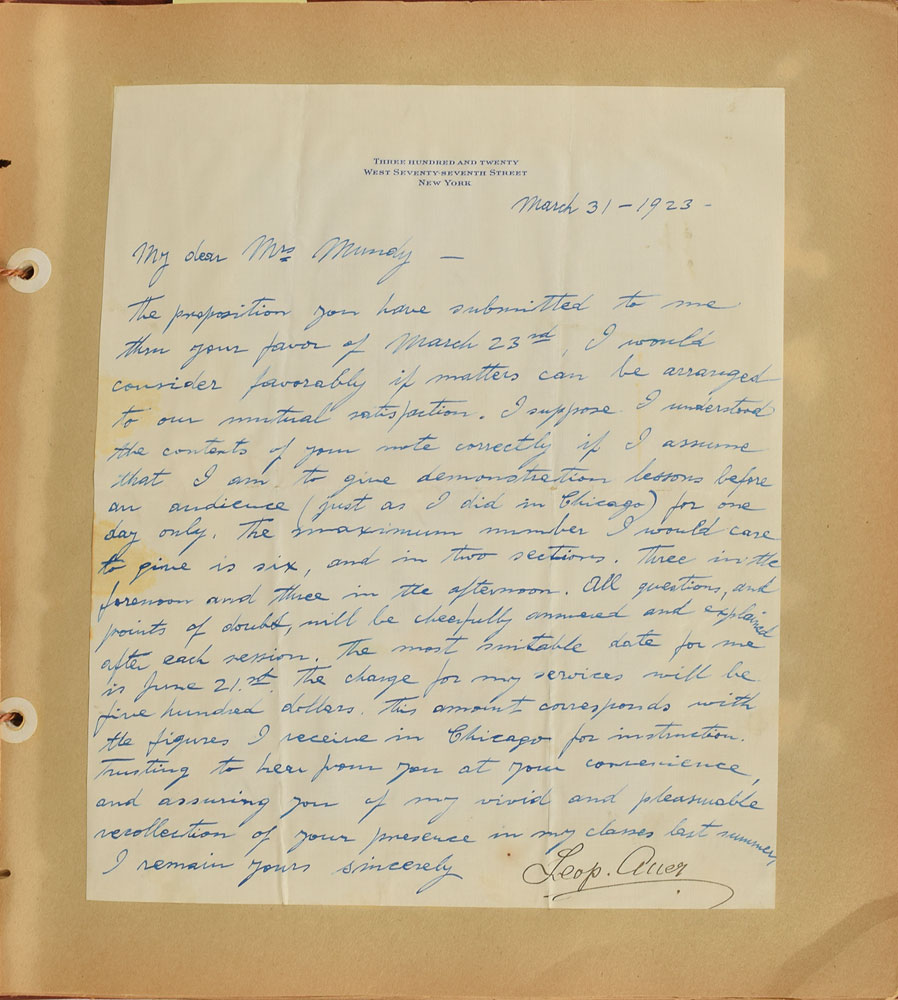 THREE HUNDRED AND TWENTY
WEST SEVENTY-SEVENTH STREET
NEW YORK
March 31 - 1923 -
My dear Mrs Mundy —
The proposition you have submitted to me
thru your favor of March 23rd, I would
consider favorably if matters can be arranged
to our mutual satisfaction. I suppose I understood
the contents of your note correctly if I assume
that I am to give demonstration lessons before
an audience (just as I did in Chicago) for one
day only. The maximum number I would care
to give is six, and in two sections. Three in the
forenoon and three in the afternoon. All questions, and
points of doubt, will be cheerfully answered and explained
after each session. The most suitable date for me
is June 21.st. The charge for my services will be
five hundred dollars. This amount corresponds with
the figures I receive in Chicago for instruction.
Trusting to hear from you at your convenience,
and assuring you of my vivid and pleasurable
recollection of your presence in my classes last summer,
I remain yours sincerely
Leop. Auer